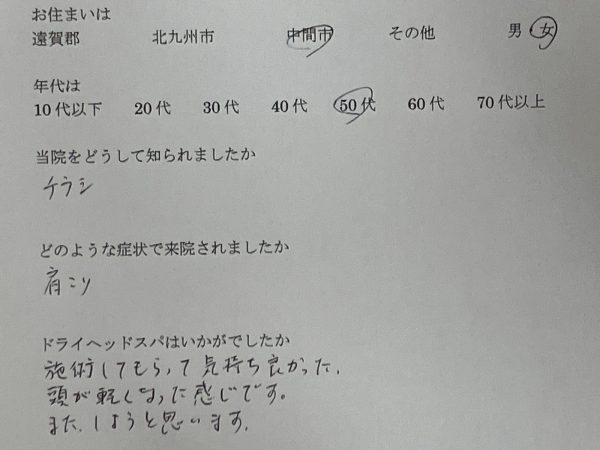 お住まいは
遠賀郡 北九州市 中間市 その他 男 女
年代は
10代以下 20代 30代 40代 50代 60代 70代以上
当院をどうして知られましたか
チラシ
どのような症状で来院されましたか
肩こり
ドライヘッドスパはいかがでしたか
施術してもらって気持ち良かった。
頭が軽くなった感じです。
また、しようと思います。